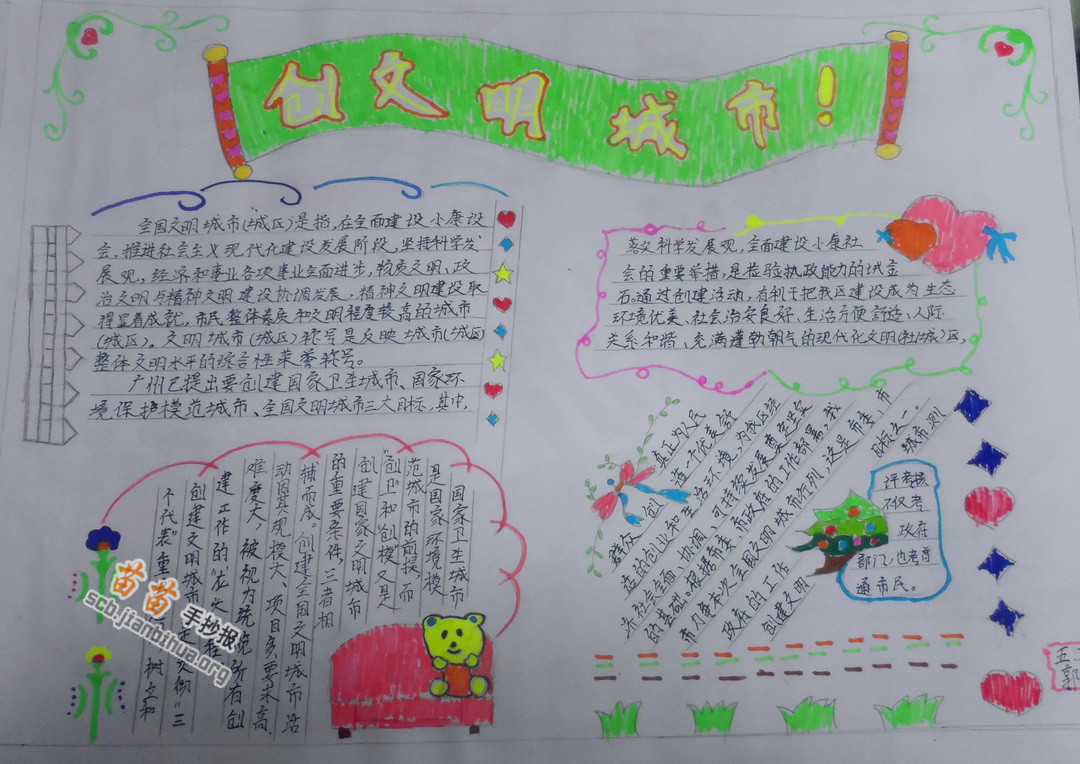 创文明城市!
全国文明城市(城区)是指,在全面建设小康社
会,推进社会主义现代化建设发展阶段,坚持科学发
展观,经济和事业各项事业全面进步,物质文明、政
治文明与精神文明建设协调发展,精神文明建设取
得显著成就,市民整体素质和文明程度较高的城市
(城区)。文明城市(城区)称号是反映城市(城区)
整体文明水平的综合性荣誉称号。
广州已提出要创建国家卫生城市、国家环
境保护模范城市、全国文明城市三大目标,其中,
国家卫生城市
是国家环境模
范城市的前提,而
"创卫"和"创模"又是
创建国家文明城市
的重要条件,三者相
辅而成。创建全国文明城市活
动因其规模大、项目多要求高、
难度大,被视为统统所有创
建工作的"龙头工程
创建文明城市
个代表"重
树立和
落实科学发展观,全面建设小康社
会的重要举措,是检验执政能力的试金
石。通过创建活动,有利于把我区建设成为生态
环境优美、社会治安良好、生活方便舒适、人际
关系和谐、充满蓬勃朝气的现代化文明(社城)区,
真正为人民
群众创造一个优美舒
适的创业和生活环境,为城区经
济社会全面、协调、可持续发展奠定坚实
的基础。根据市委、市政府的工作部署,我
市力争本次全国文明城市行列,这是市委,市
政府的工作目标之一。
创建文明城市测
评考核
不仅考
政府
部门,也考普
通市民。
五二
郭
苗苗手抄报
scb.jianbihua.org